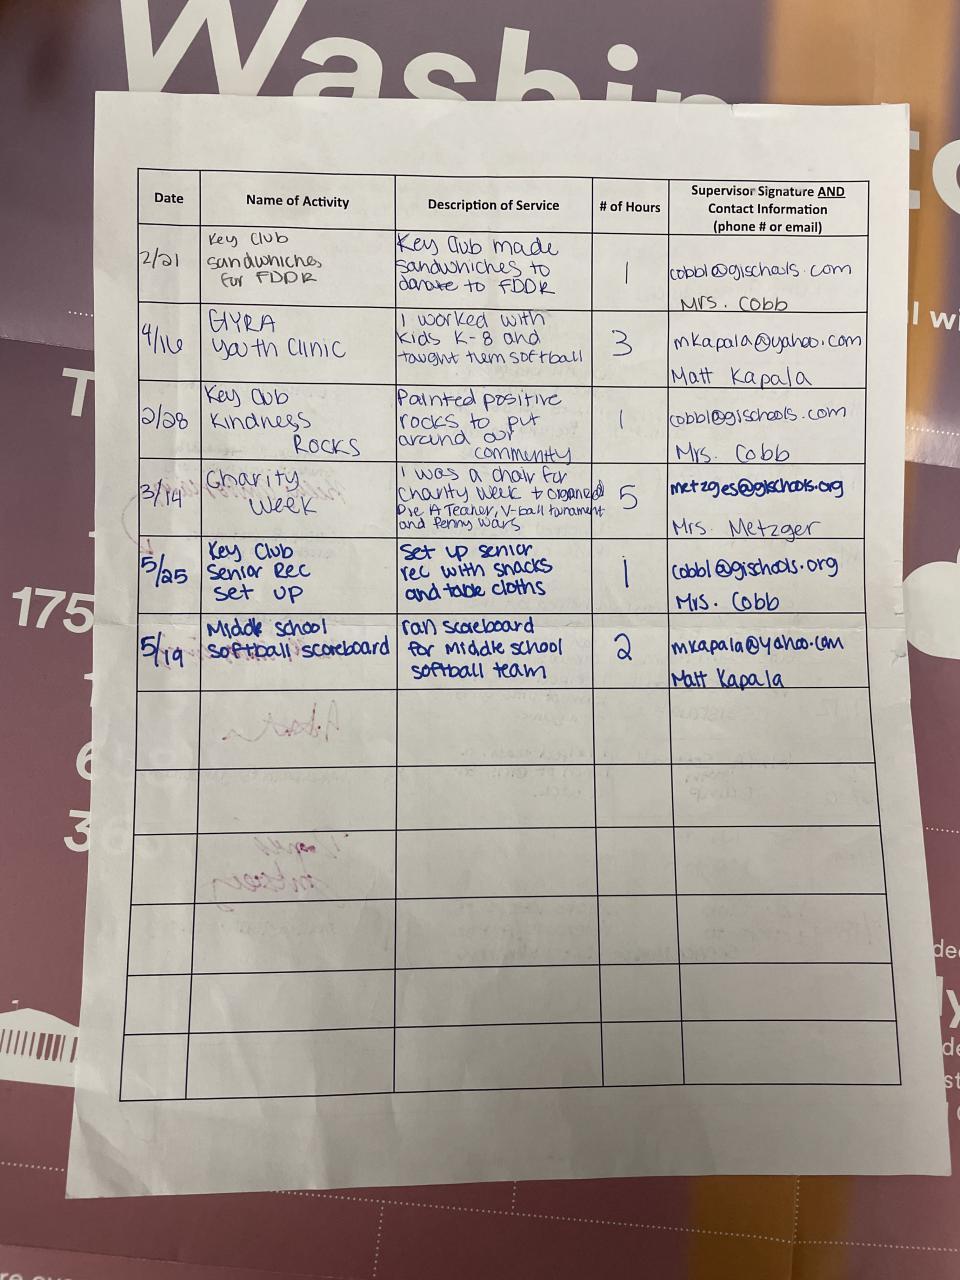 Washin
T
175
1
6
3
l wi
Date
Name of Activity
Description of Service
# of Hours
Supervisor Signature AND
Contact Information
(phone # or email)
2/21
Key Club
sandwhiches
for FDDR
Key Club made
sandwhiches to
donate to FDDR
1
cobbl@gischools.com
Mrs. Cobb
4/16
GIYRA
Youth Clinic
I worked with
kids K-8 and
taught them softball
3
mkapala@yahoo.com
Matt Kapala
2/28
Key Club
Kindness
ROCKS
Painted positive
rocks to put
around our
community
1
cobbl@gischools.com
Mrs. Cobb
3/14
Charity
Week
I was a chair for
Charity Week + organized
Pie A Teacher, V-ball turnament
and Penny Wars
5
metzges@gischools.org
Mrs. Metzger
5/25
Key Club
Senior Rec
set up
Set up senior
rec with snacks
and table cloths
1
cobbl@gischools.org
Mrs. Cobb
5/19
Middle school
softball scoreboard
ran scoreboard
for Middle school
softball team
2
mkapala@yahoo.com
Matt Kapala